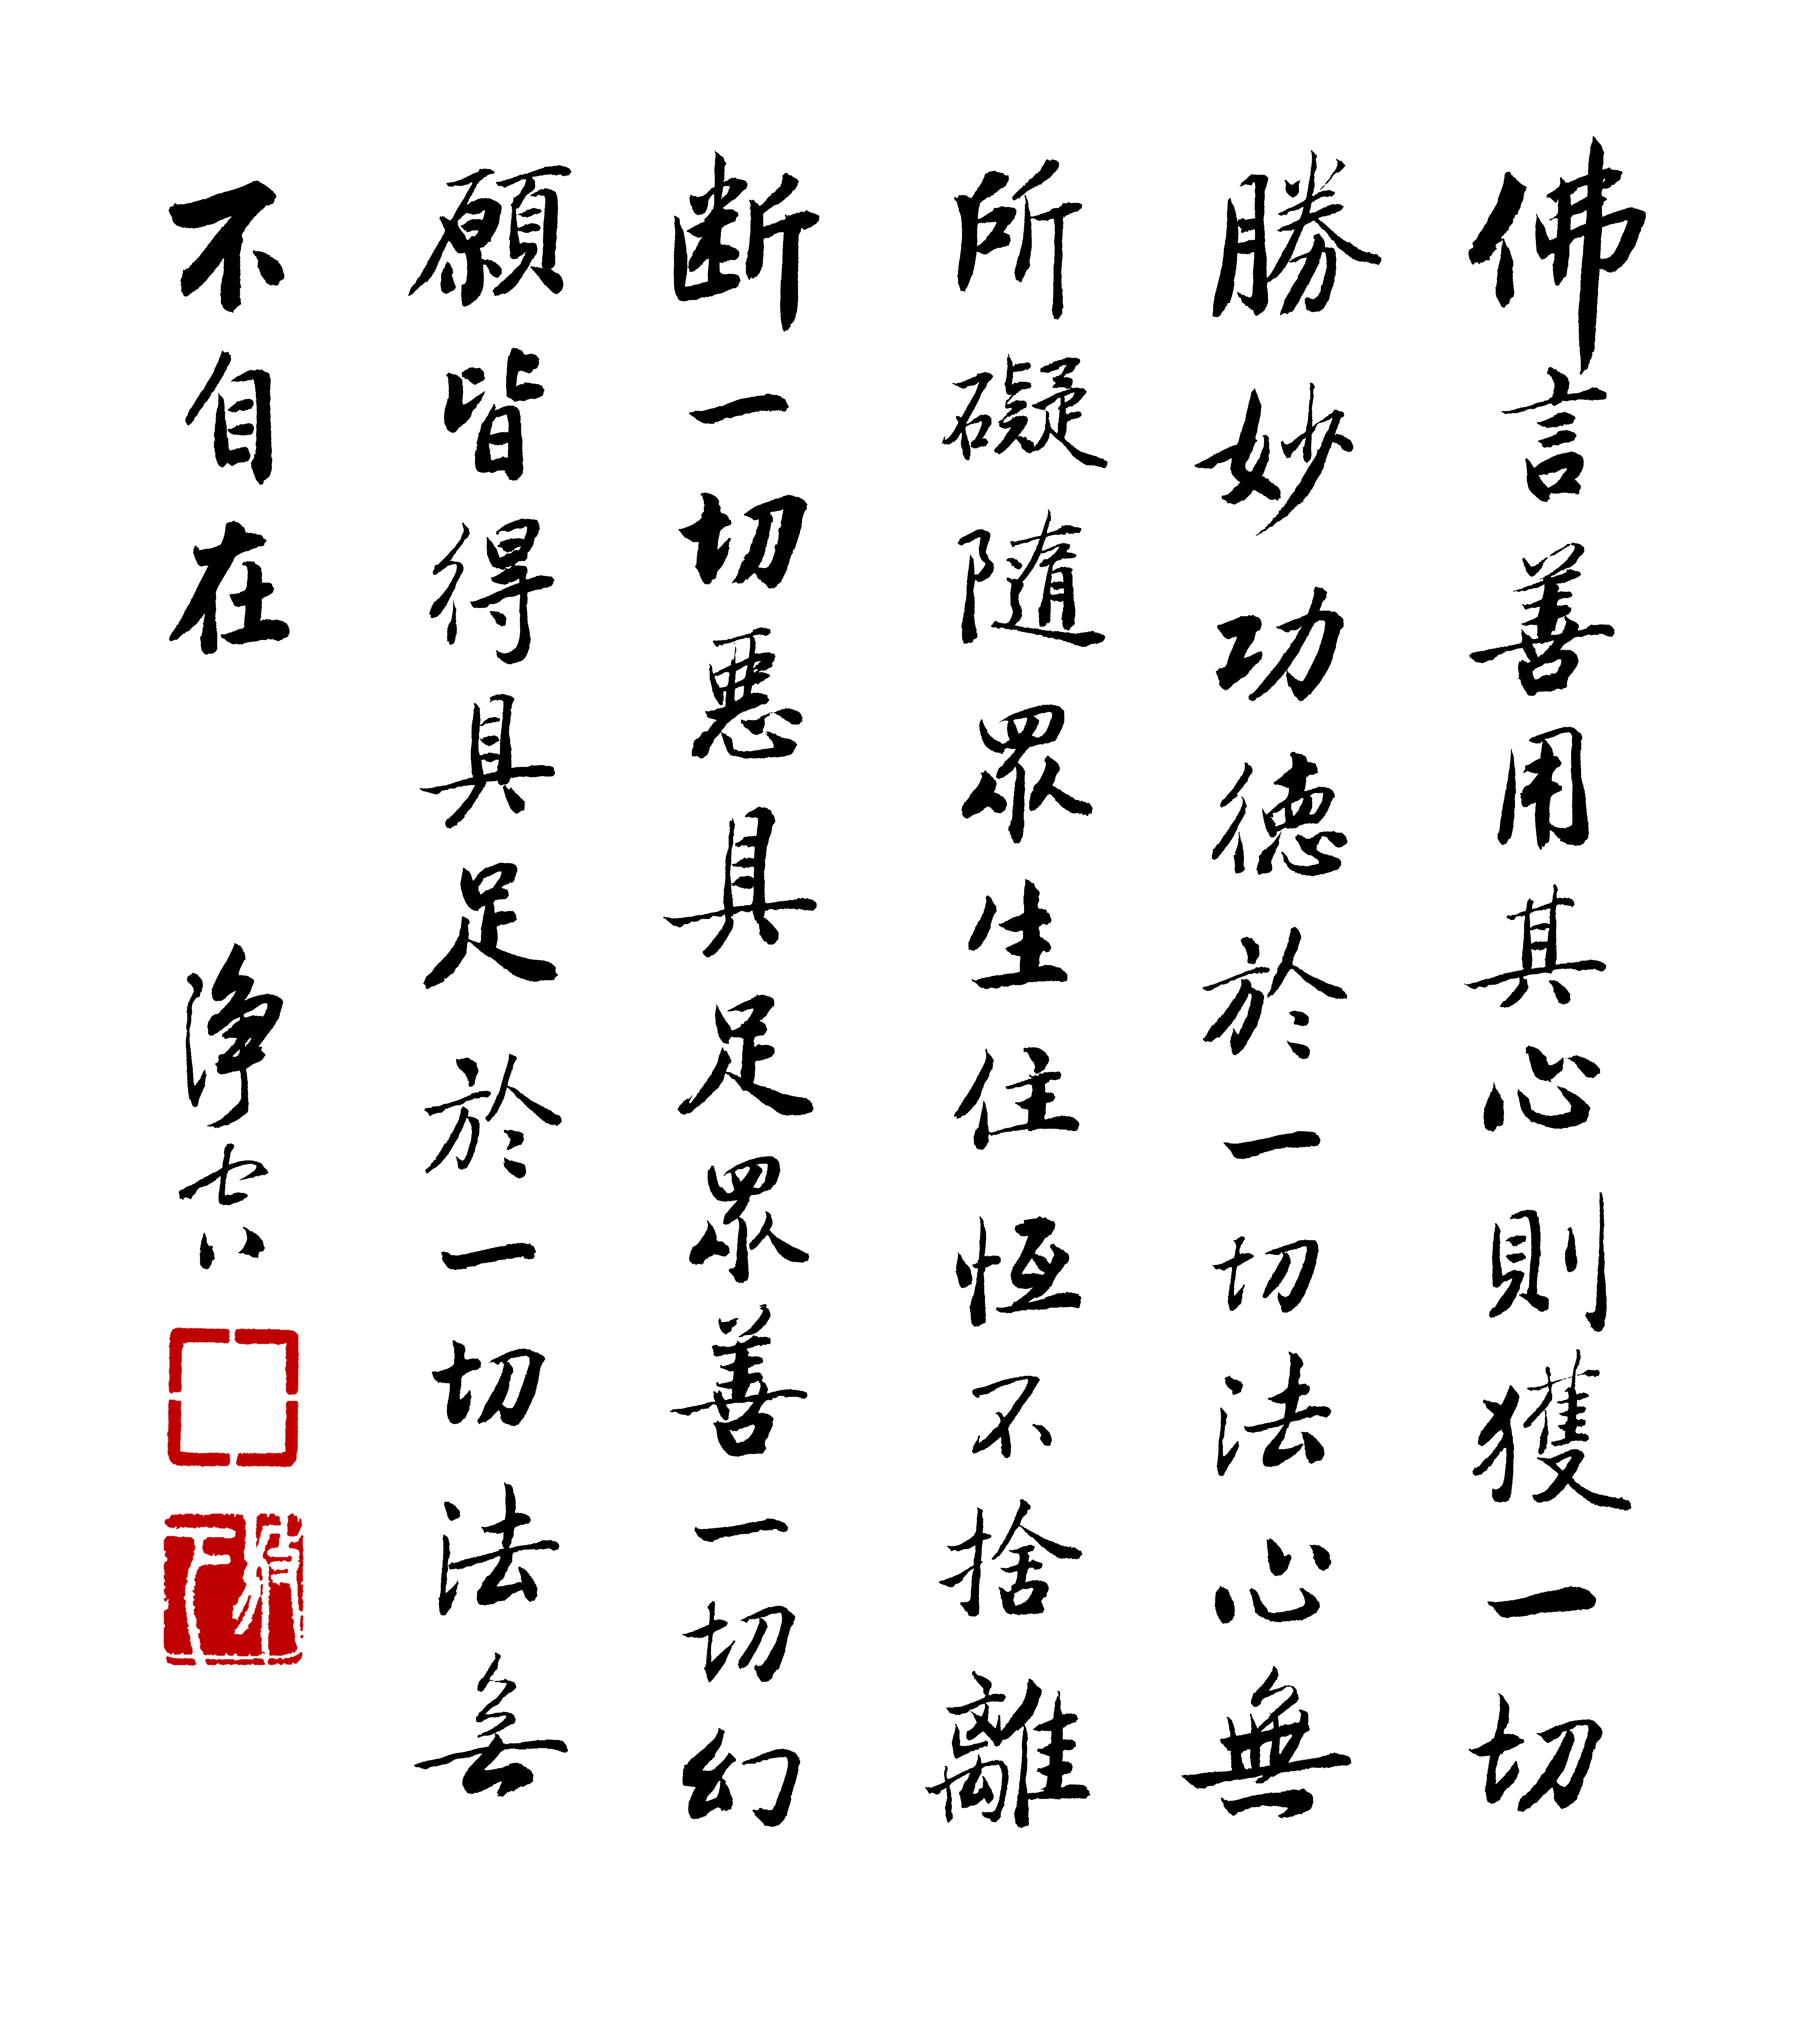 佛言善用其心則獲一切
勝妙功德於一切法心無
所礙隨眾生住恆不捨離
断一切悪具足眾善一切幻
願皆得具足於一切法無
不自在
浄七八